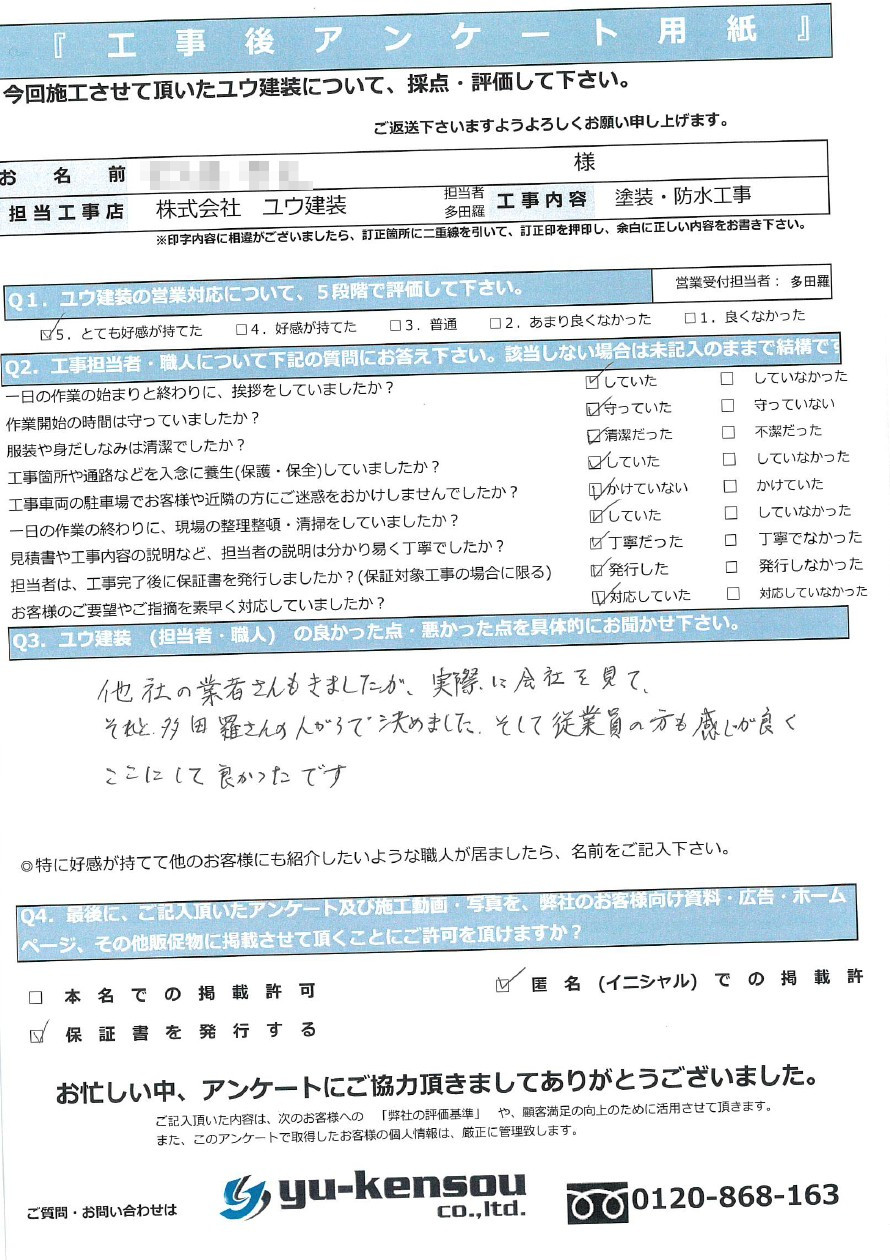 『 工 事 後 ア ン ケ ー ト 用 紙 』
今回施工させて頂いたユウ建装について、採点・評価して下さい。
ご返送下さいますようよろしくお願い申し上げます。
お 名 前 様
担当工事店 株式会社 ユウ建装 担当者 多田羅 工事内容 塗装・防水工事
※印字内容に相違がございましたら、訂正箇所に二重線を引いて、訂正印を押印し、余白に正しい内容をお書き下さい。
Q1．ユウ建装の営業対応について、５段階で評価して下さい。 営業受付担当者： 多田羅
☑5．とても好感が持てた □4．好感が持てた □3．普通 □2．あまり良くなかった □1．良くなかった
Q2．工事担当者・職人について下記の質問にお答え下さい。該当しない場合は未記入のままで結構です
一日の作業の始まりと終わりに、挨拶をしていましたか？ ☑ していた □ していなかった
作業開始の時間は守っていましたか？ ☑ 守っていた □ 守っていない
服装や身だしなみは清潔でしたか？ ☑ 清潔だった □ 不潔だった
工事箇所や通路などを入念に養生(保護・保全)していましたか？ ☑ していた □ していなかった
工事車両の駐車場でお客様や近隣の方にご迷惑をおかけしませんでしたか？ ☑ かけていない □ かけていた
一日の作業の終わりに、現場の整理整頓・清掃をしていましたか？ ☑ していた □ していなかった
見積書や工事内容の説明など、担当者の説明は分かり易く丁寧でしたか？ ☑ 丁寧だった □ 丁寧でなかった
担当者は、工事完了後に保証書を発行しましたか？(保証対象工事の場合に限る) ☑ 発行した □ 発行しなかった
お客様のご要望やご指摘を素早く対応していましたか？ ☑ 対応していた □ 対応していなかった
Q3．ユウ建装 (担当者・職人) の良かった点・悪かった点を具体的にお聞かせ下さい。
他社の業者さんもきましたが、実際に会社を見て、
それと、多田羅さんの人がらで決めました。そして従業員の方も感じが良く
ここにして良かったです
◎特に好感が持てて他のお客様にも紹介したいような職人が居ましたら、名前をご記入下さい。
Q4．最後に、ご記入頂いたアンケート及び施工動画・写真を、弊社のお客様向け資料・広告・ホーム
ページ、その他販促物に掲載させて頂くことにご許可を頂けますか？
□ 本 名 で の 掲 載 許 可 ☑ 匿 名 (イニシャル) で の 掲 載 許
☑ 保 証 書 を 発 行 す る
お忙しい中、アンケートにご協力頂きましてありがとうございました。
ご記入頂いた内容は、次のお客様への 「弊社の評価基準」 や、顧客満足の向上のために活用させて頂きます。
また、このアンケートで取得したお客様の個人情報は、厳正に管理致します。
ご質問・お問い合わせは yu-kensou co.,ltd. 0120-868-163